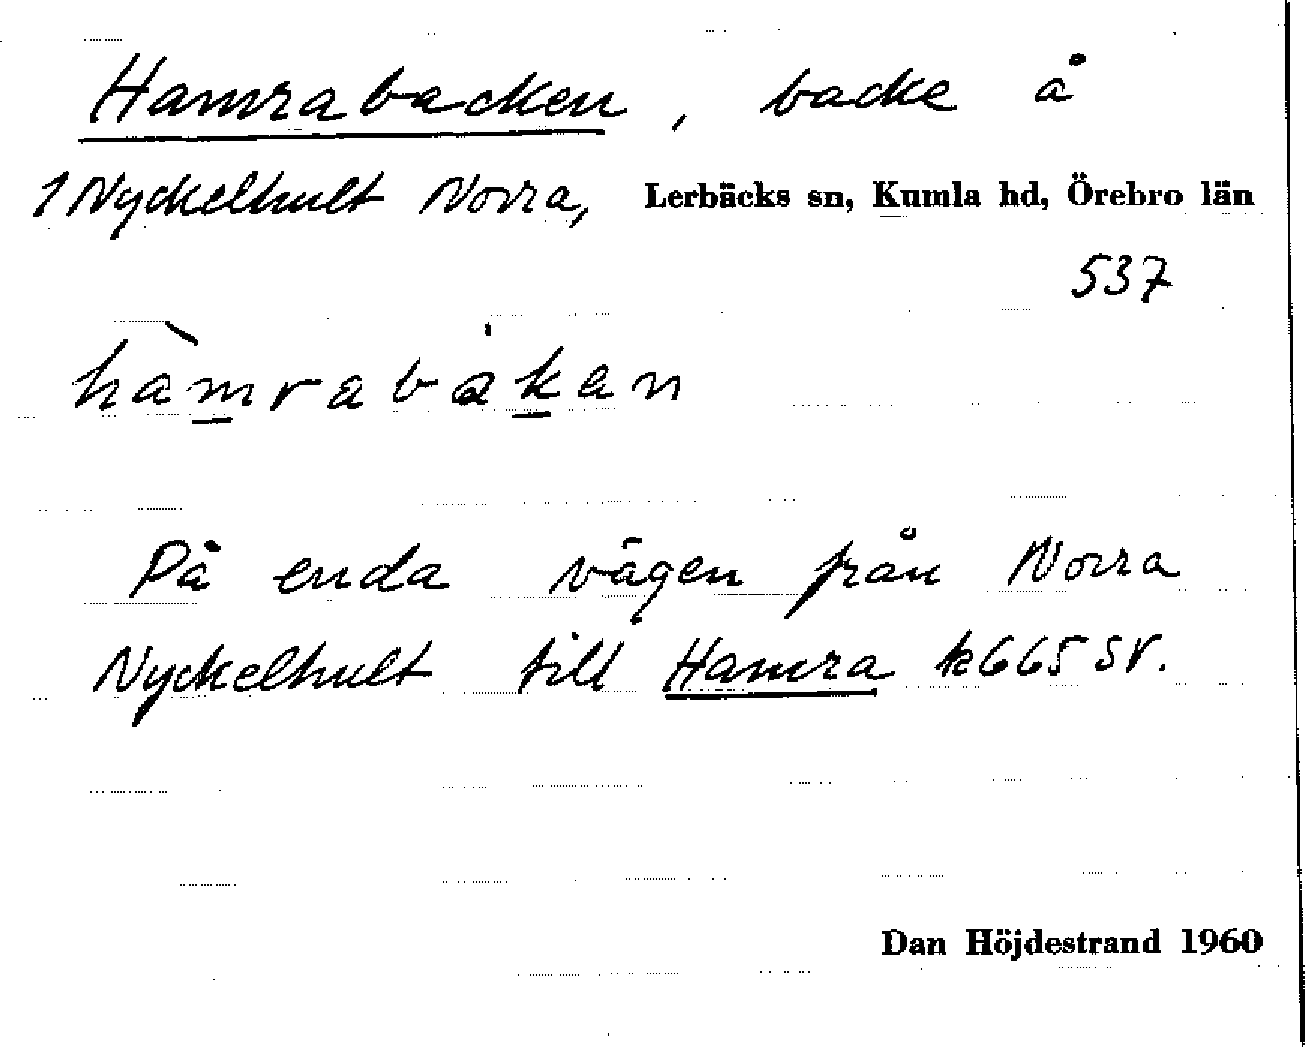 Hamrabacken, backe å
1 Nyckelhult Norra, Lerbäcks sn, Kumla hd, Örebro län
537
hàmrabákan
På enda vägen från Norra
Nyckelhult till Hamra k665 SV.
Dan Höjdestrand 1960